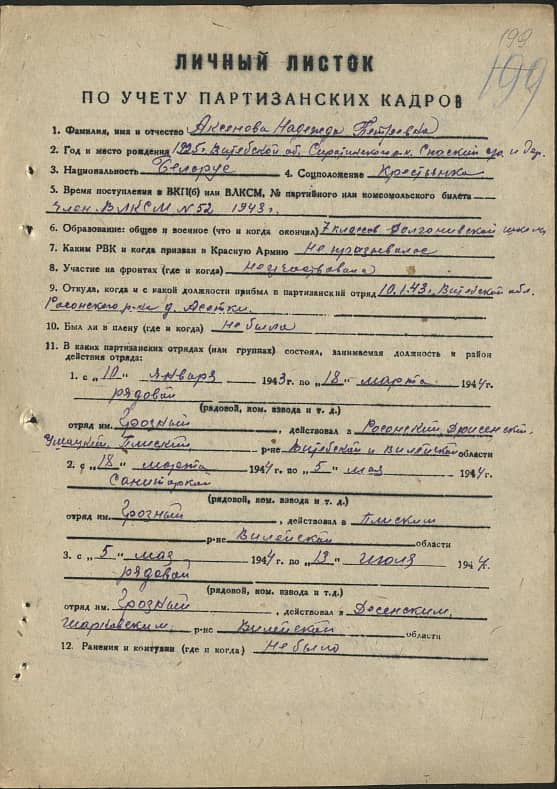 199
199
ЛИЧНЫЙ ЛИСТОК
ПО УЧЕТУ ПАРТИЗАНСКИХ КАДРОВ
1. Фамилия, имя и отчество Аксенова Надежда Петровна
2. Год и место рождения 1925 г. Витебской об. Сиротинского р.н. Спаский с/с и дер.
3. Национальность Белорус 4. Соцположение Крестьянка
5. Время поступления в ВКП(б) или ВЛКСМ, № партийного или комсомольского билета
Член ВЛКСМ N 52 1943 г.
6. Образование: общее и военное (что и когда окончил) 7 классов школы
7. Каким РВК и когда призван в Красную Армию Не призывалас
8. Участие на фронтах (где и когда) Не участвовала
9. Откуда, когда и с какой должности прибыл в партизанский отряд 10.1.43 г. Витебской обл.
Росонского р-на д.
10. Был ли в плену (где и когда) не была
11. В каких партизанских отрядах (или группах) состоял, занимаемая должность и район
действия отряда:
1. с „10“ января 1943 г. по „18“ марта 1944 г.
рядовой
(рядовой, ком. взвода и т. д.)
отряд им. Грозный, действовал в Росонский, Дрисенский
Ушацкий Плиский р-не Витебской и Вилейской области
2. с „18“ марта 1944 г. по „5“ мая 1944 г.
Санитаркой
(рядовой, ком. взвода и т. д.)
отряд им. Грозный, действовал в Плиским
р-не Вилейской области
3. с „5“ мая 1944 г. по „13“ июля 1944 г.
рядовой
(рядовой, ком. взвода и т. д.)
отряд им. Грозный, действовал в Десенским,
Шарковским, р-не Вилейской области
12. Ранения и контузии (где и когда) Не было